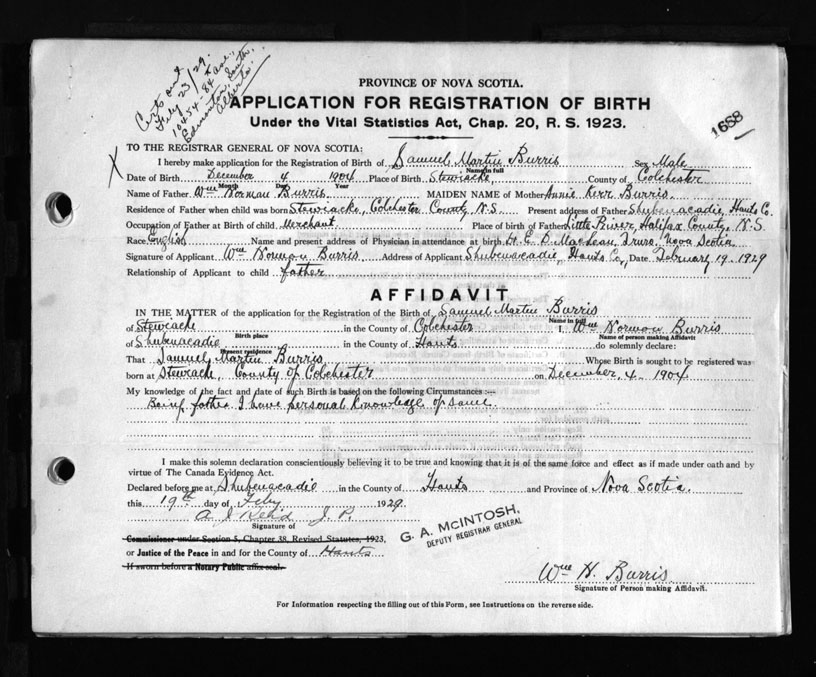 Certs out
Feby 23/29.
10454-84 Ave.,
Edmonton South,
Alberta.
1688
PROVINCE OF NOVA SCOTIA.
APPLICATION FOR REGISTRATION OF BIRTH
Under the Vital Statistics Act, Chap. 20, R. S. 1923.
X
TO THE REGISTRAR GENERAL OF NOVA SCOTIA:
I hereby make application for the Registration of Birth of Samuel Martin Burris Sex Male
Name in full
Date of Birth December 4 1904 Place of Birth Stewiacke, County of Colchester
Month Day Year
Name of Father Wm Norman Burris MAIDEN NAME of Mother Annie Kerr Burris.
Residence of Father when child was born Stewiacke, Colchester County N.S. Present address of Father Shubenacadie, Hants Co.
Occupation of Father at Birth of child Merchant. Place of birth of Father Little River, Halifax County N.S.
Race English Name and present address of Physician in attendance at birth, H. C. D. MacLean, Truro, Nova Scotia
Signature of Applicant Wm Norman Burris Address of Applicant Shubenacadie, Hants Co., Date February 19-1929
Relationship of Applicant to child father
AFFIDAVIT
IN THE MATTER of application for the Registration of the Birth of Samuel Martin Burris
Name in full
of Stewiacke in the County of Colchester I, Wm Norman Burris
Birth place Name of person making Affidavit
of Shubenacadie in the County of Hants do solemnly declare:
Present residence
That Samuel Martin Burris Whose Birth is sought to be registered was
born at Stewiack, County of Colchester on December, 4 - 1904
My knowledge of the fact and date of such Birth is based on the following Circumstances :—
Being father I have personal knowledge of same.
I make this solemn declaration conscientiously believing it to be true and knowing that it is of the same force and effect as if made under oath and by
virtue of The Canada Evidence Act.
Declared before me at Shubenacadie in the County of Hants and Province of Nova Scotia.
this 19th day of Feby 1929.
A. J. Reid J. P.
Signature of
G. A. McINTOSH,
DEPUTY REGISTRAR GENERAL
Commissioner under Section 5, Chapter 38, Revised Statutes, 1923,
or Justice of the Peace in and for the County of Hants
If sworn before a Notary Public affix seal.
Wm H. Burris
Signature of Person making Affidavit.
For Information respecting the filling out of this Form, see Instructions on the reverse side.